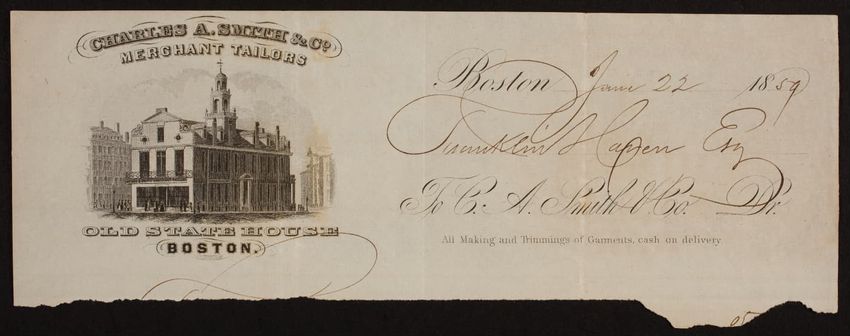 CHARLES A. SMITH & Co.
MERCHANT TAILORS
OLD STATE HOUSE
BOSTON.
Boston Jan 22 1859
Franklin Haven Esq
To C. A. Smith & Co. Dr.
All Making and Trimmings of Garments, cash on delivery